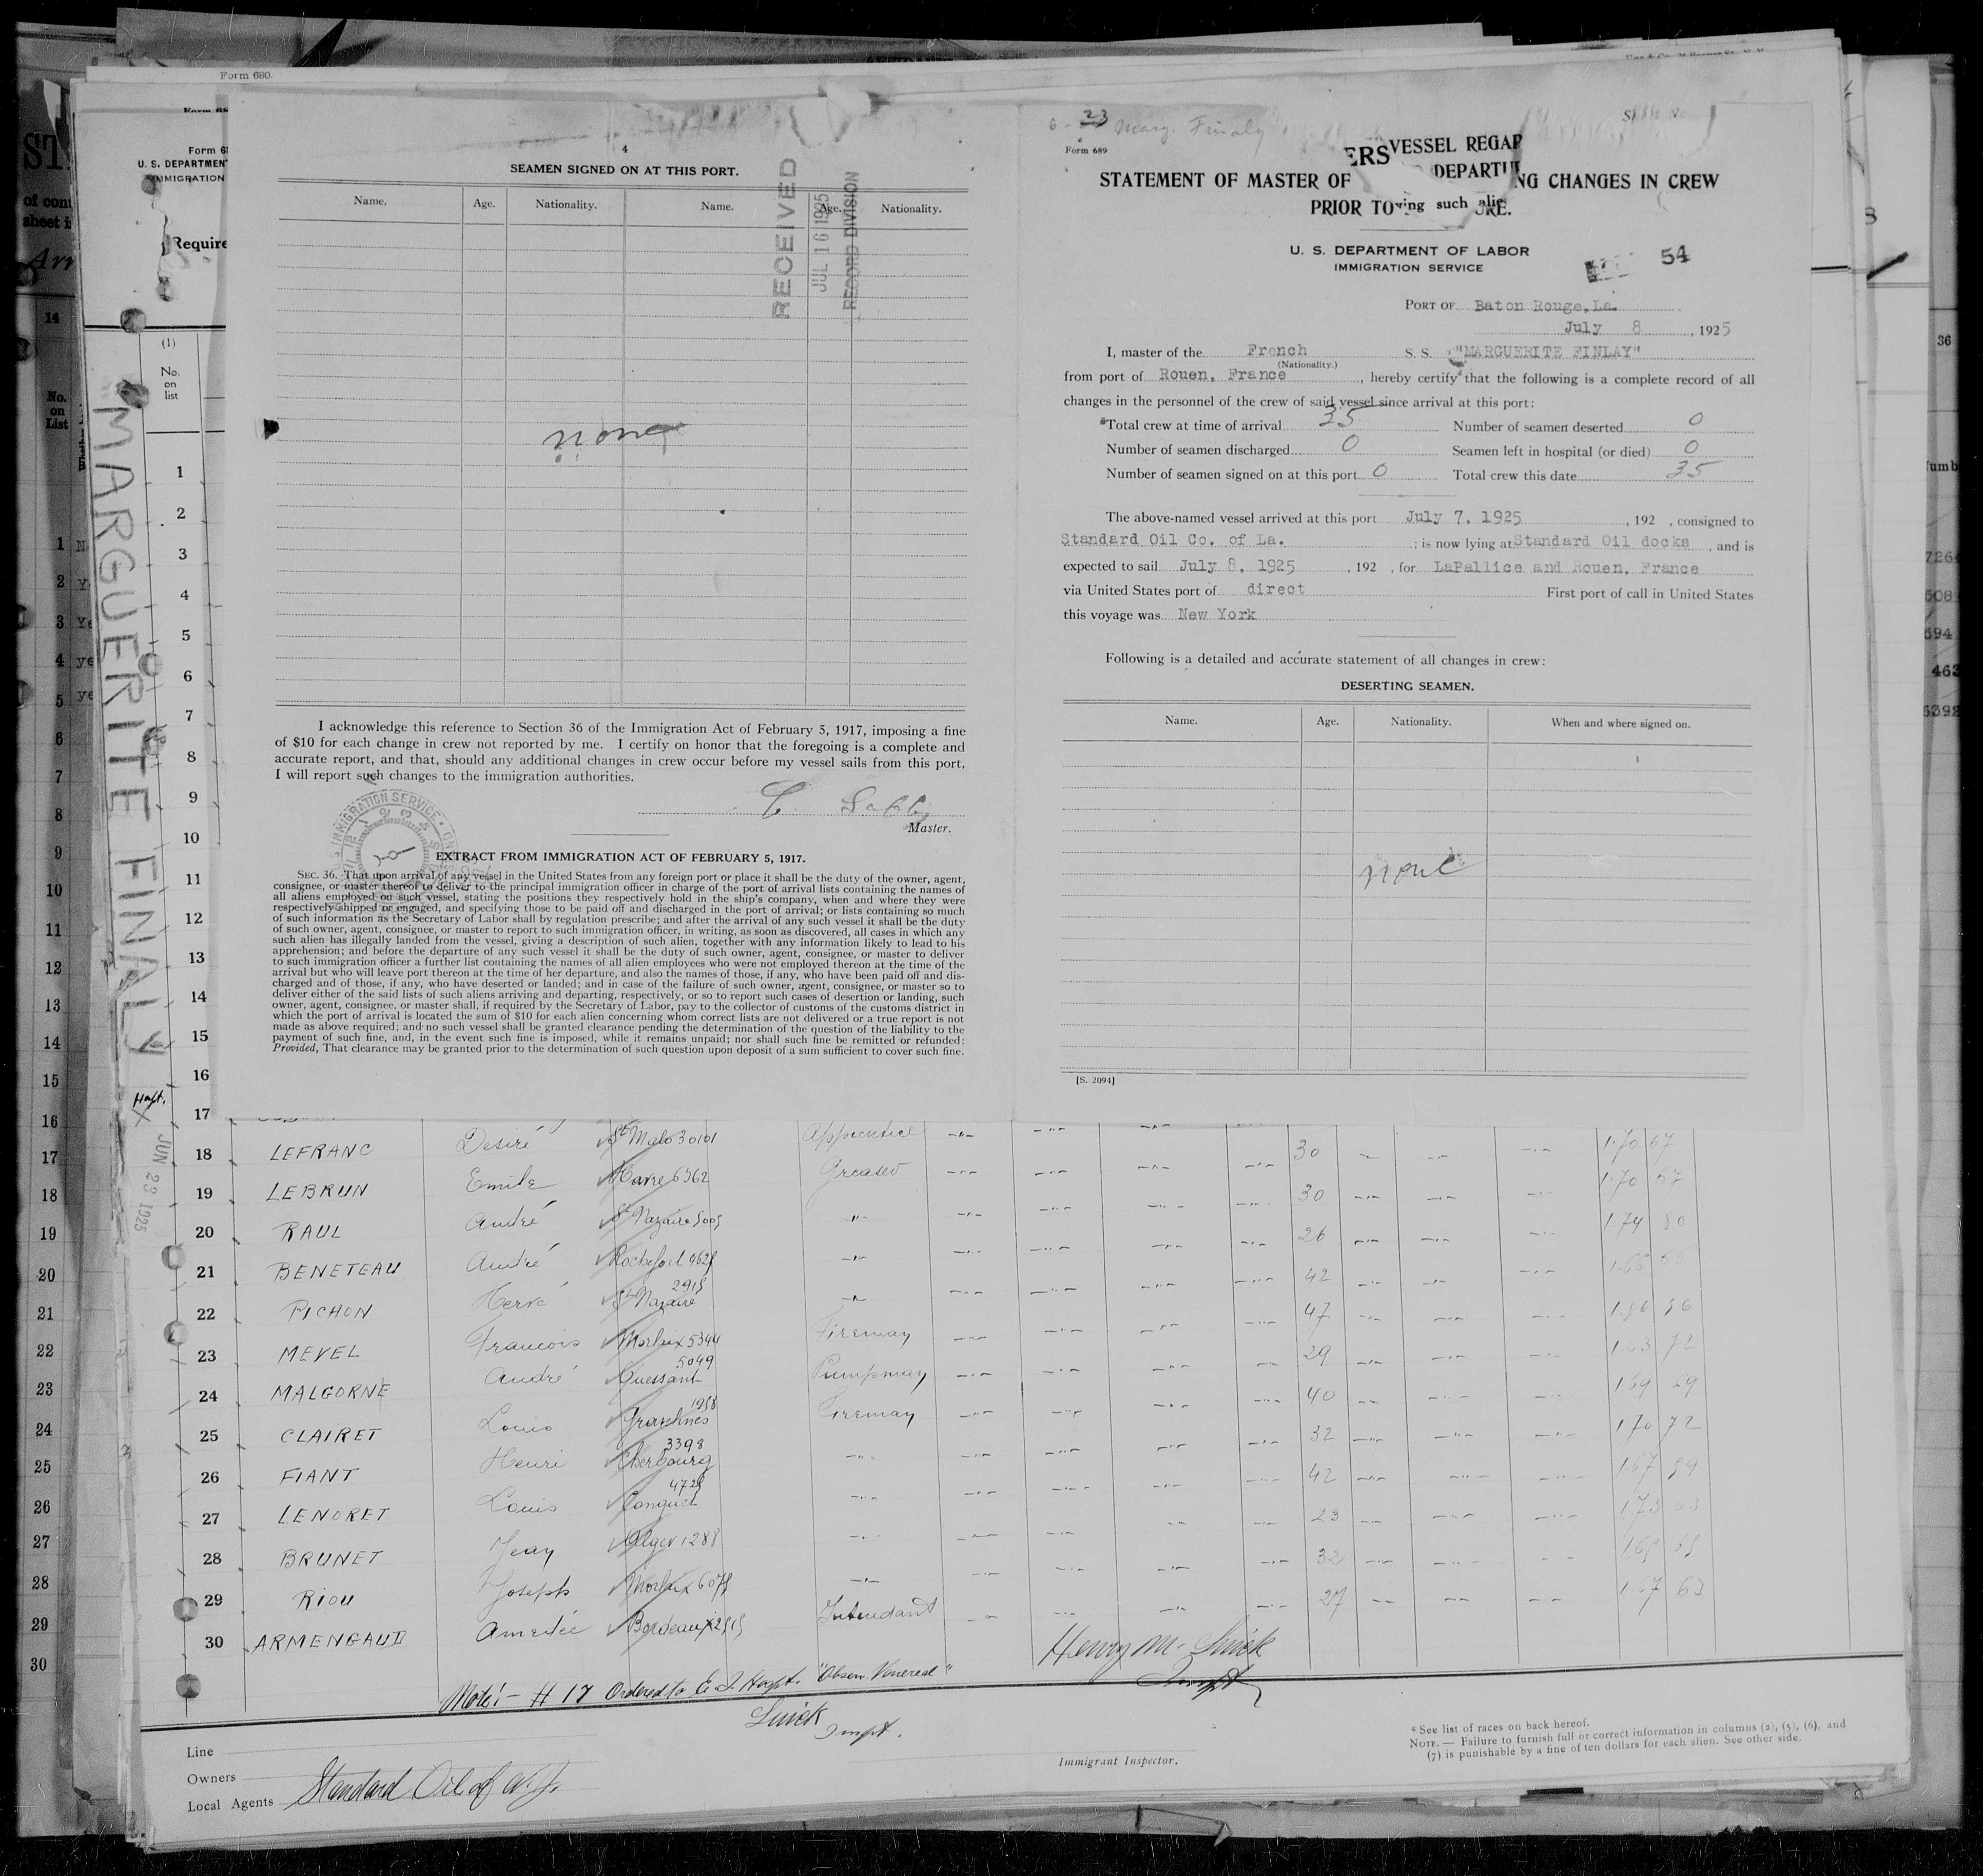 Form 680.
Form 68
U. S. DEPARTMEN
IMMIGRATION
Require
(1)
No.
on
list
MARGUERITE FINALY
JUN 23 1925
Hospt.
X
4
SEAMEN SIGNED ON AT THIS PORT.
Name. Age. Nationality. Name. Age. Nationality.
RECEIVED
JUL 16 1925
RECORD DIVISION
none
I acknowledge this reference to Section 36 of the Immigration Act of February 5, 1917, imposing a fine
of $10 for each change in crew not reported by me. I certify on honor that the foregoing is a complete and
accurate report, and that, should any additional changes in crew occur before my vessel sails from this port,
I will report such changes to the immigration authorities.
Master.
EXTRACT FROM IMMIGRATION ACT OF FEBRUARY 5, 1917.
SEC. 36. That upon arrival of any vessel in the United States from any foreign port or place it shall be the duty of the owner, agent,
consignee, or master thereof to deliver to the principal immigration officer in charge of the port of arrival lists containing the names of
all aliens employed on such vessel, stating the positions they respectively hold in the ship's company, when and where they were
respectively shipped or engaged, and specifying those to be paid off and discharged in the port of arrival; or lists containing so much
of such information as the Secretary of Labor shall by regulation prescribe; and after the arrival of any such vessel it shall be the duty
of such owner, agent, consignee, or master to report to such immigration officer, in writing, as soon as discovered, all cases in which any
such alien has illegally landed from the vessel, giving a description of such alien, together with any information likely to lead to his
apprehension; and before the departure of any such vessel it shall be the duty of such owner, agent, consignee, or master to deliver
to such immigration officer a further list containing the names of all alien employees who were not employed thereon at the time of the
arrival but who will leave port thereon at the time of her departure, and also the names of those, if any, who have been paid off and dis-
charged and of those, if any, who have deserted or landed; and in case of the failure of such owner, agent, consignee, or master so to
deliver either of the said lists of such aliens arriving and departing, respectively, or so to report such cases of desertion or landing, such
owner, agent, consignee, or master shall, if required by the Secretary of Labor, pay to the collector of customs of the customs district in
which the port of arrival is located the sum of $10 for each alien concerning whom correct lists are not delivered or a true report is not
made as above required; and no such vessel shall be granted clearance pending the determination of the question of the liability to the
payment of such fine, and, in the event such fine is imposed, while it remains unpaid; nor shall such fine be remitted or refunded:
Provided, That clearance may be granted prior to the determination of such question upon deposit of a sum sufficient to cover such fine.
6 - 23 Marg. Finaly
Form 689
ERS VESSEL REGAR
DEPARTU
STATEMENT OF MASTER OF NG CHANGES IN CREW
PRIOR TO ving such alie URE.
U. S. DEPARTMENT OF LABOR
IMMIGRATION SERVICE
54
PORT OF Baton Rouge, La.
July 8, 1925
I, master of the French S. S. "MARGUERITE FINLAY"
(Nationality.)
from port of Rouen, France, hereby certify that the following is a complete record of all
changes in the personnel of the crew of said vessel since arrival at this port:
Total crew at time of arrival 35 Number of seamen deserted 0
Number of seamen discharged 0 Seamen left in hospital (or died) 0
Number of seamen signed on at this port 0 Total crew this date 35
The above-named vessel arrived at this port July 7, 1925, 192 , consigned to
Standard Oil Co. of La. ; is now lying at Standard Oil docks, and is
expected to sail July 8, 1925, 192 , for LaPallice and Rouen, France
via United States port of direct First port of call in United States
this voyage was New York
Following is a detailed and accurate statement of all changes in crew:
DESERTING SEAMEN.
Name. Age. Nationality. When and where signed on.
none
[S. 2094]
18 LEFRANC Desiré St Malo 30101 Apprentice 30 1.70 67
19 LEBRUN Emile Havre 6362 Greaser 30 1.70 67
20 RAUL André St Nazaire 5005 26 1.74 80
21 BENETEAU André Rochefort 42
22 PICHON Hervé St Nazaire 47
23 MEVEL Francois Morlaix 5344 Fireman 29 1.63 72
24 MALGORNE André Ouessant 5049 Pumpman 40 1.69 69
25 CLAIRET Louis Fireman 32 1.70 72
26 FIANT Henri Cherbourg 3398 42
27 LENORET Louis Conquet 23
28 BRUNET Jean Alger 32
29 RIOU Joseph Morlaix 27 1.67 63
30 ARMENGAUD Amedée Bordeaux Intendant
Henry M. Smick
Inspt.
Note: - # 17 Ordered to E. I. Hospt. "Obsen. Venereal"
Smick
Inspt.
Line
Owners
Local Agents Standard Oil of N.J.
Immigrant Inspector.
* See list of races on back hereof.
NOTE. — Failure to furnish full or correct information in columns (2), (5), (6), and
(7) is punishable by a fine of ten dollars for each alien. See other side.